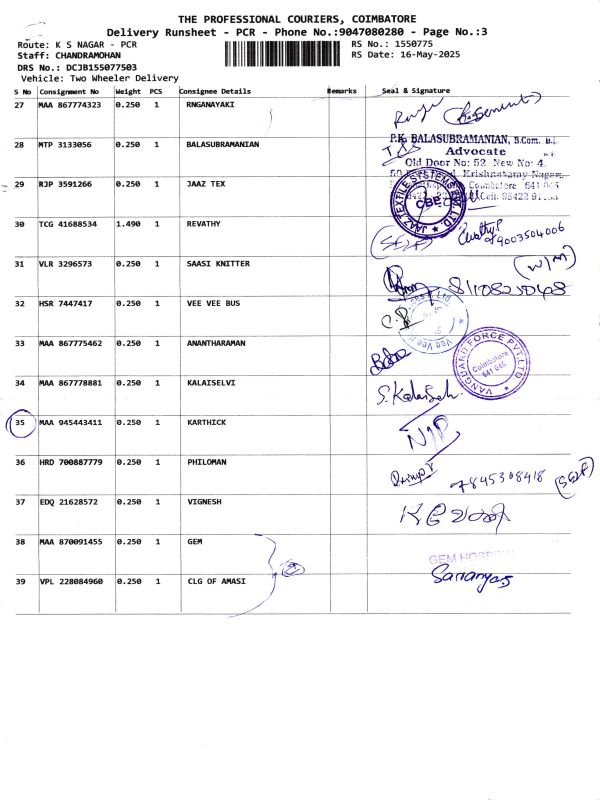 THE PROFESSIONAL COURIERS, COIMBATORE
Delivery Runsheet - PCR - Phone No.:9047080280 - Page No.:3
Route: K S NAGAR - PCR
RS No.: 1550775
Staff: CHANDRAMOHAN
RS Date: 16-May-2025
DRS No.: DCJB155077503
Vehicle: Two Wheeler Delivery
S No Consignment No Weight PCS Consignee Details Remarks Seal & Signature
27 MAA 867774323 0.250 1 RNGANAYAKI
28 MTP 3133056 0.250 1 BALASUBRAMANIAN
P.K. BALASUBRAMANIAN, B.Com. B.L
Advocate
Old Door No: 52 New No: 4,
Krishnasamy Nagar,
Coimbatore 641 045
29 RJP 3591266 0.250 1 JAAZ TEX
JAAZ TEXTILE SYSTEM PVT LTD.
CBE
30 TCG 41688534 1.490 1 REVATHY
(SELF) 9003504006
31 VLR 3296573 0.250 1 SAASI KNITTER
(W/M)
8110825048
32 HSR 7447417 0.250 1 VEE VEE BUS
33 MAA 867775462 0.250 1 ANANTHARAMAN
VANGUARD FORCE PVT.LTD
Coimbatore
641 045.
34 MAA 867778881 0.250 1 KALAISELVI
S. Kalaiselvi
35 MAA 945443411 0.250 1 KARTHICK
N/P
36 HRD 700887779 0.250 1 PHILOMAN
7845308418 (SELF)
37 EDQ 21628572 0.250 1 VIGNESH
38 MAA 870091455 0.250 1 GEM
GEM HOSPITAL
39 VPL 228084960 0.250 1 CLG OF AMASI
Saranya.s